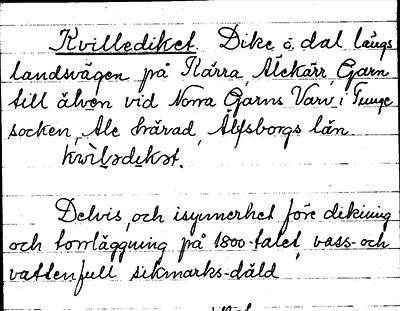 Kvillediket. Dike o. dal längs
landsvägen på Kärra, Alekärr, Garn
till älven vid Norra Garns Varv i Tunge
socken, Ale härad, Älfsborgs län.
Delvis, och isynnerhet före dikning
och torrläggning på 1800-talet, vass- och
vattenfull sikmarks-däld